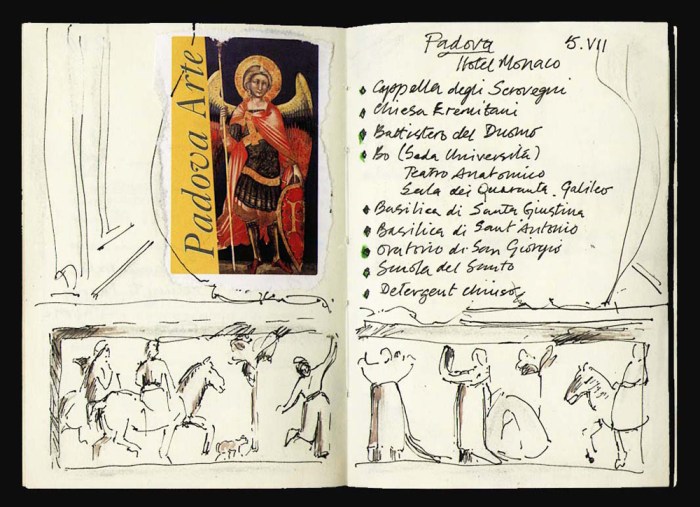 Padova Arte
Padova 5.VII
Hotel Monaco
Cappella degli Scrovegni
Chiesa Eremitani
Battistero del Duomo
Bo (Sede Università)
Teatro Anatomico
Sala dei Quaranta. Galileo
Basilica di Santa Giustina
Basilica di Sant'Antonio
Oratorio di San Giorgio
Scuola del Santo
Detergent chiuso